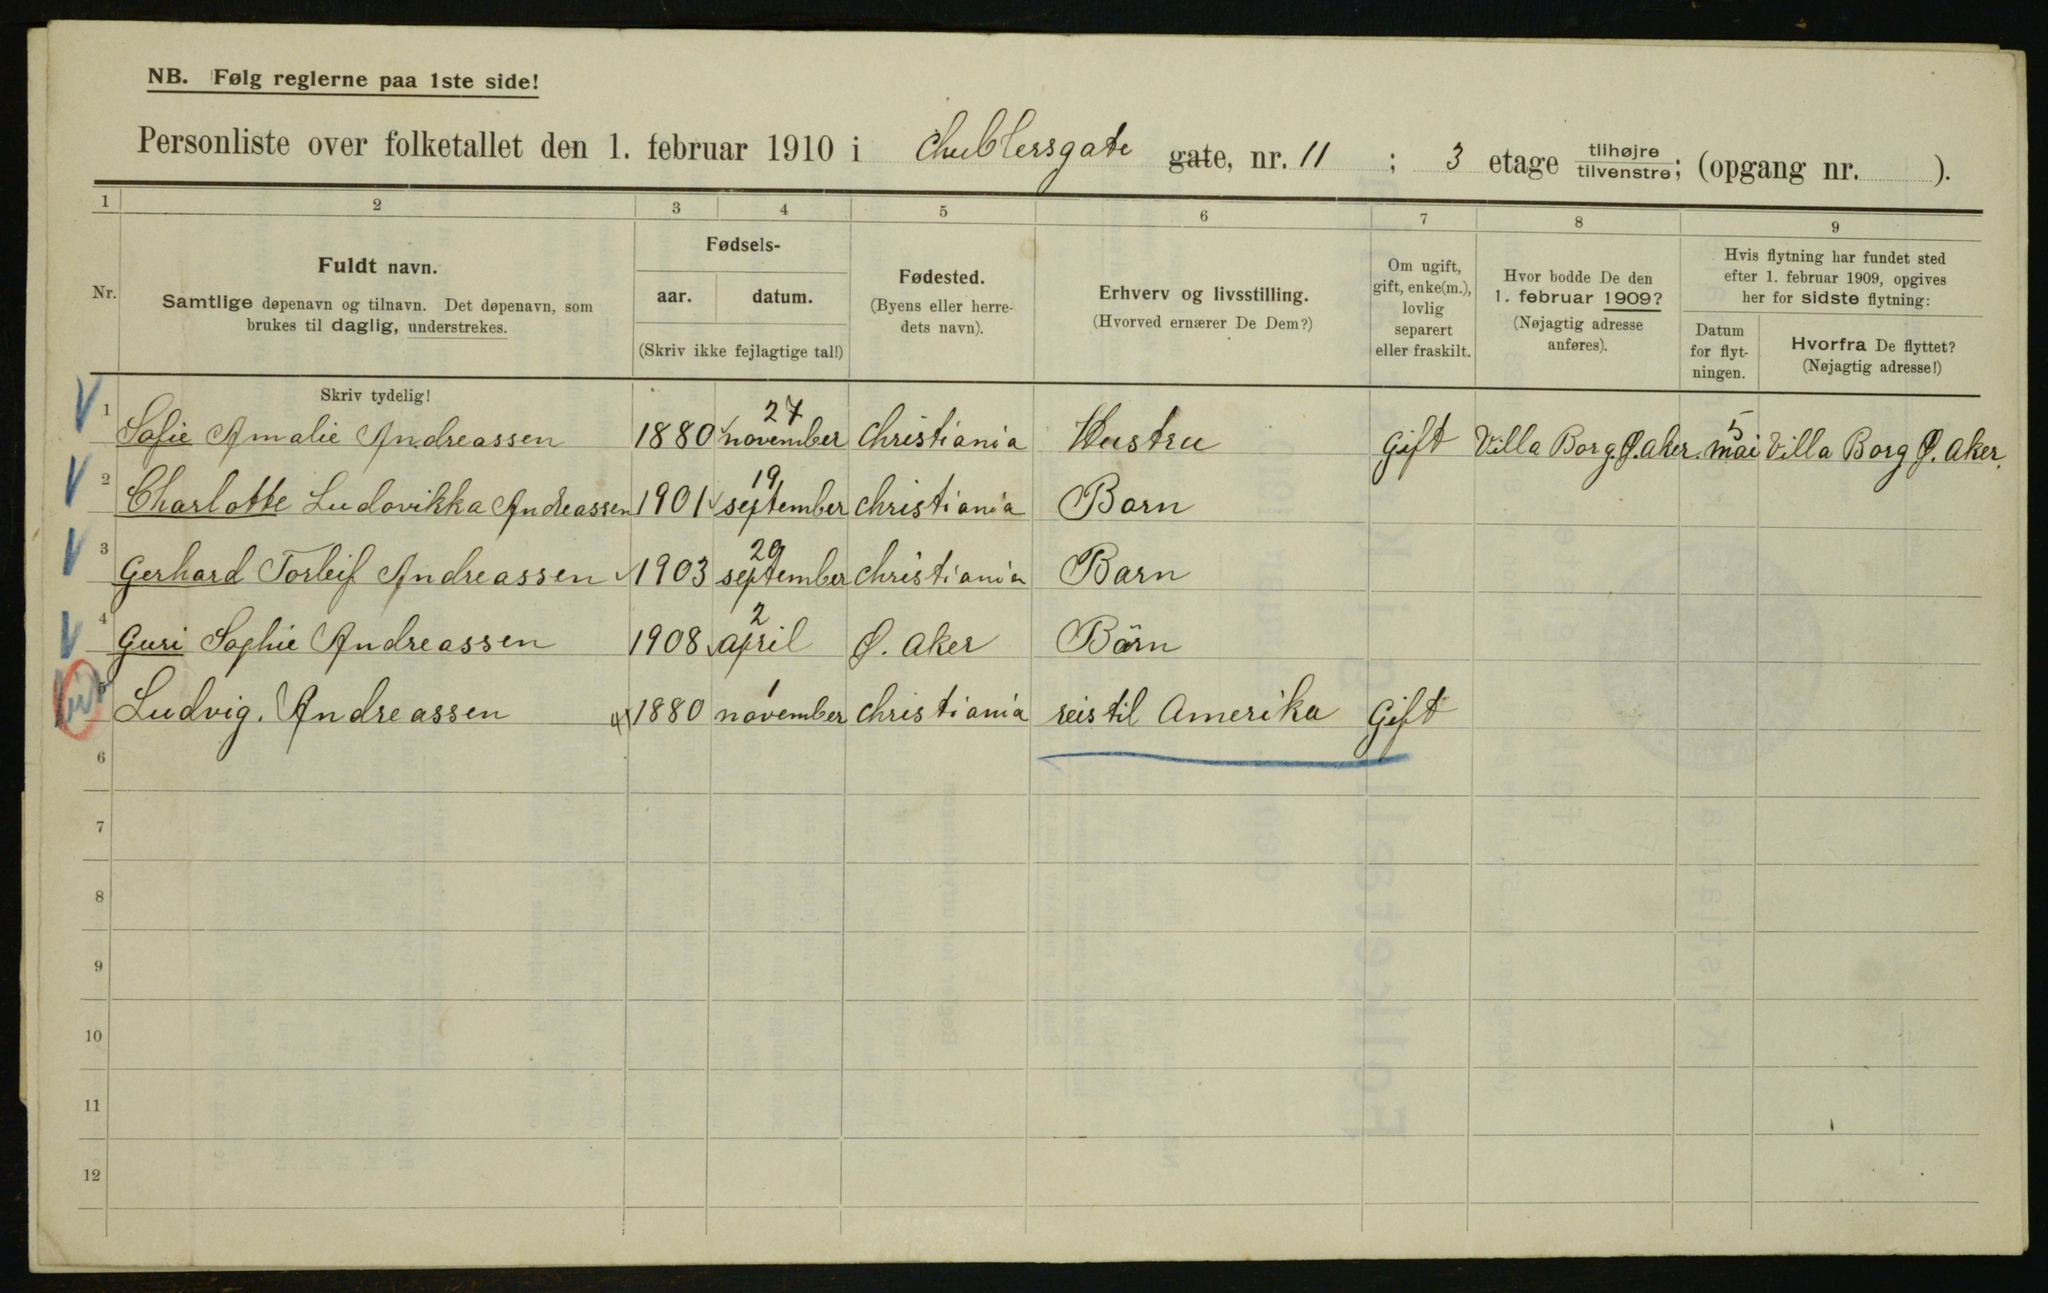 NB. Følg reglerne paa 1ste side!
Personliste over folketallet den 1. februar 1910 i Chublersgate gate, nr. 11 ; 3 etage tilhøjre tilvenstre; (opgang nr. ).
1 2 3 4 5 6 7 8 9
Nr.
Fuldt navn.
Samtlige døpenavn og tilnavn. Det døpenavn, som
brukes til daglig, understrekes.
Skriv tydelig!
Fødsels-
aar. datum.
(Skriv ikke fejlagtige tal!)
Fødested.
(Byens eller herre-
dets navn).
Erhverv og livsstilling.
(Hvorved ernærer De Dem?)
Om ugift,
gift, enke(m.),
lovlig
separert
eller fraskilt.
Hvor bodde De den
1. februar 1909?
(Nøjagtig adresse
anføres).
Hvis flytning har fundet sted
efter 1. februar 1909, opgives
her for sidste flytning:
Datum
for flyt-
ningen.
Hvorfra De flyttet?
(Nøjagtig adresse!)
1 Sofie Amalie Andreassen 1880 27 november Christiania Hustru Gift Villa Borg. Ø. Aker. 5 mai Villa Borg Ø. Aker.
2 Charlotte Ludovikka Andreassen 1901 19 september Christiania Barn
3 Gerhard Torleif Andreassen 1903 29 september Christiania Barn
4 Guri Sophie Andreassen 1908 2 april Ø. Aker Barn
5 Ludvig. Andreassen 1880 1 november Christiania reis til Amerika Gift
6
7
8
9
10
11
12